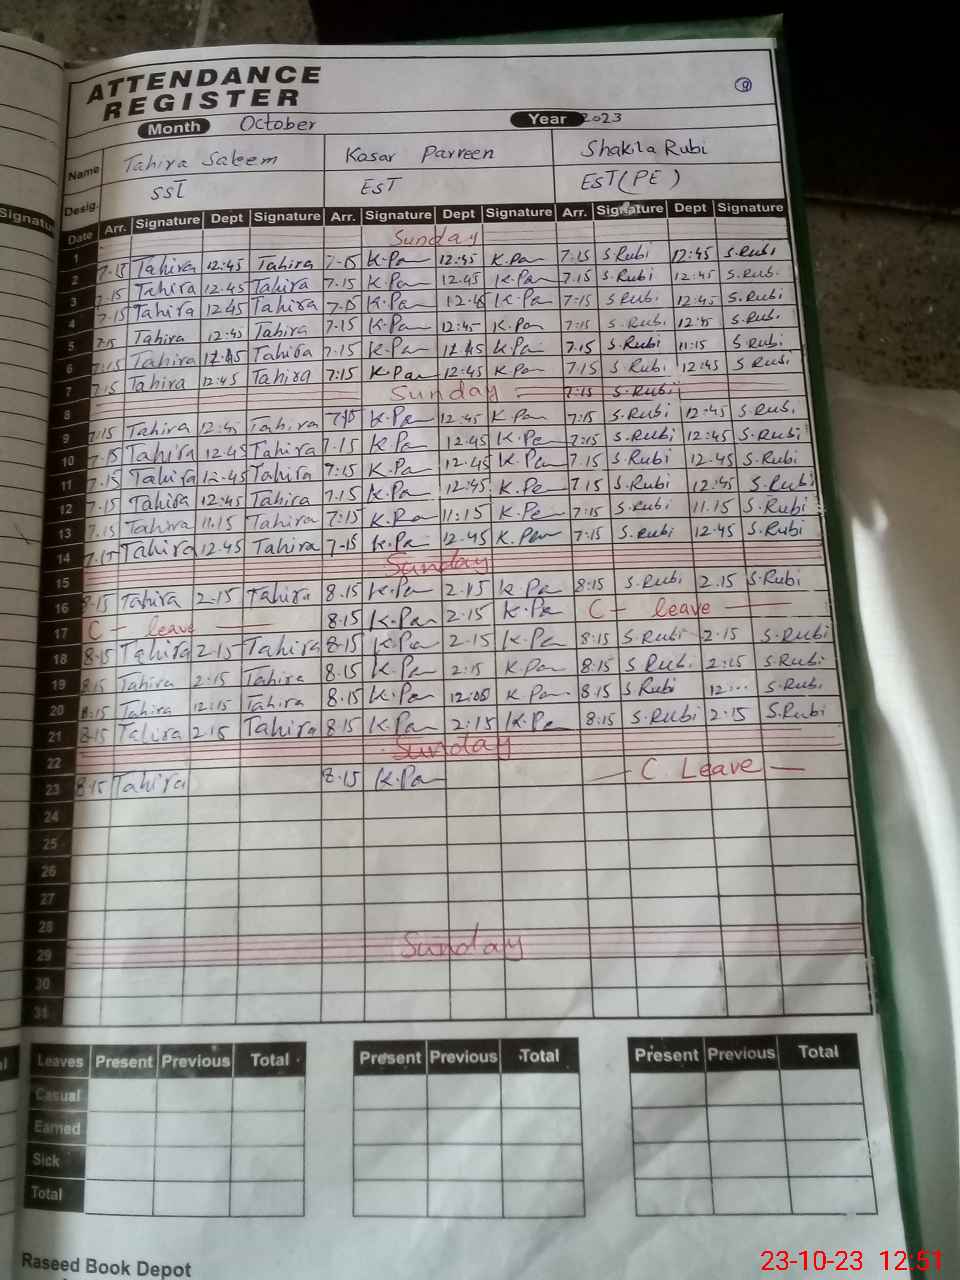 ATTENDANCE
REGISTER
9
Month October Year 2023
Name Tahira Saleem Kosar Parveen Shakila Rubi
Desig. SST EST EST (PE)
Signature
Date Arr. Signature Dept Signature Arr. Signature Dept Signature Arr. Signature Dept Signature
1 Sunday
2 7.15 Tahira 12:45 Tahira 7.15 K.Pa 12:45 K.Pa 7.15 S.Rubi 12:45 S.Rubi
3 7.15 Tahira 12.45 Tahira 7.15 K.Pa 12.45 K.Pa 7.15 S.Rubi 12:45 S.Rubi
4 7.15 Tahira 12.45 Tahira 7.15 K.Pa 12.45 K.Pa 7:15 S.Rubi 12:45 S.Rubi
5 7.15 Tahira 12:45 Tahira 7.15 K.Pa 12:45 K.Pa 7:15 S.Rubi 12:45 S.Rubi
6 7.15 Tahira Tahira 7.15 K.Pa K.Pa 7.15 S.Rubi 11:15 S.Rubi
7 7.15 Tahira 12:45 Tahira 7:15 K.Pa 12:45 K.Pa 7.15 S.Rubi 12:45 S.Rubi
8 Sunday 7:15 S.Rubi
9 7:15 Tahira 12:45 Tahira 7.15 K.Pa 12:45 K.Pa 7:15 S.Rubi 12:45 S.Rubi
10 7.15 Tahira 12.45 Tahira 7.15 K.Pa 12.45 K.Pa 7:15 S.Rubi 12:45 S.Rubi
11 7.15 Tahira 12.45 Tahira 7:15 K.Pa 12.45 K.Pa 7.15 S.Rubi 12.45 S.Rubi
12 7.15 Tahira 12:45 Tahira 7.15 K.Pa 12:45 K.Pa 7.15 S.Rubi 12:45 S.Rubi
13 7.15 Tahira 11.15 Tahira 7:15 K.Pa 11:15 K.Pa 7:15 S.Rubi 11.15 S.Rubi
14 7.15 Tahira 12.45 Tahira 7.15 K.Pa 12.45 K.Pa 7:15 S.Rubi 12.45 S.Rubi
15 Sunday
16 8.15 Tahira 2.15 Tahira 8.15 K.Pa 2.15 K.Pa 8:15 S.Rubi 2.15 S.Rubi
17 C - leave 8.15 K.Pa 2.15 K.Pa C - leave
18 8.15 Tahira 2.15 Tahira 8.15 K.Pa 2.15 K.Pa 8:15 S.Rubi 2.15 S.Rubi
19 8.15 Tahira 2:15 Tahira 8.15 K.Pa 2:15 K.Pa 8:15 S.Rubi 2:15 S.Rubi
20 8:15 Tahira 12:15 Tahira 8.15 K.Pa K.Pa 8.15 S.Rubi 12:.. S.Rubi
21 8.15 Tahira 2.15 Tahira 8.15 K.Pa 2.15 K.Pa 8:15 S.Rubi 2.15 S.Rubi
22 Sunday
23 8.15 Tahira 8.15 K.Pa C. Leave
24
25
26
27
28
29 Sunday
30
31
Leaves Present Previous Total Present Previous Total Present Previous Total
Casual
Earned
Sick
Total
Raseed Book Depot
23-10-23 12:51